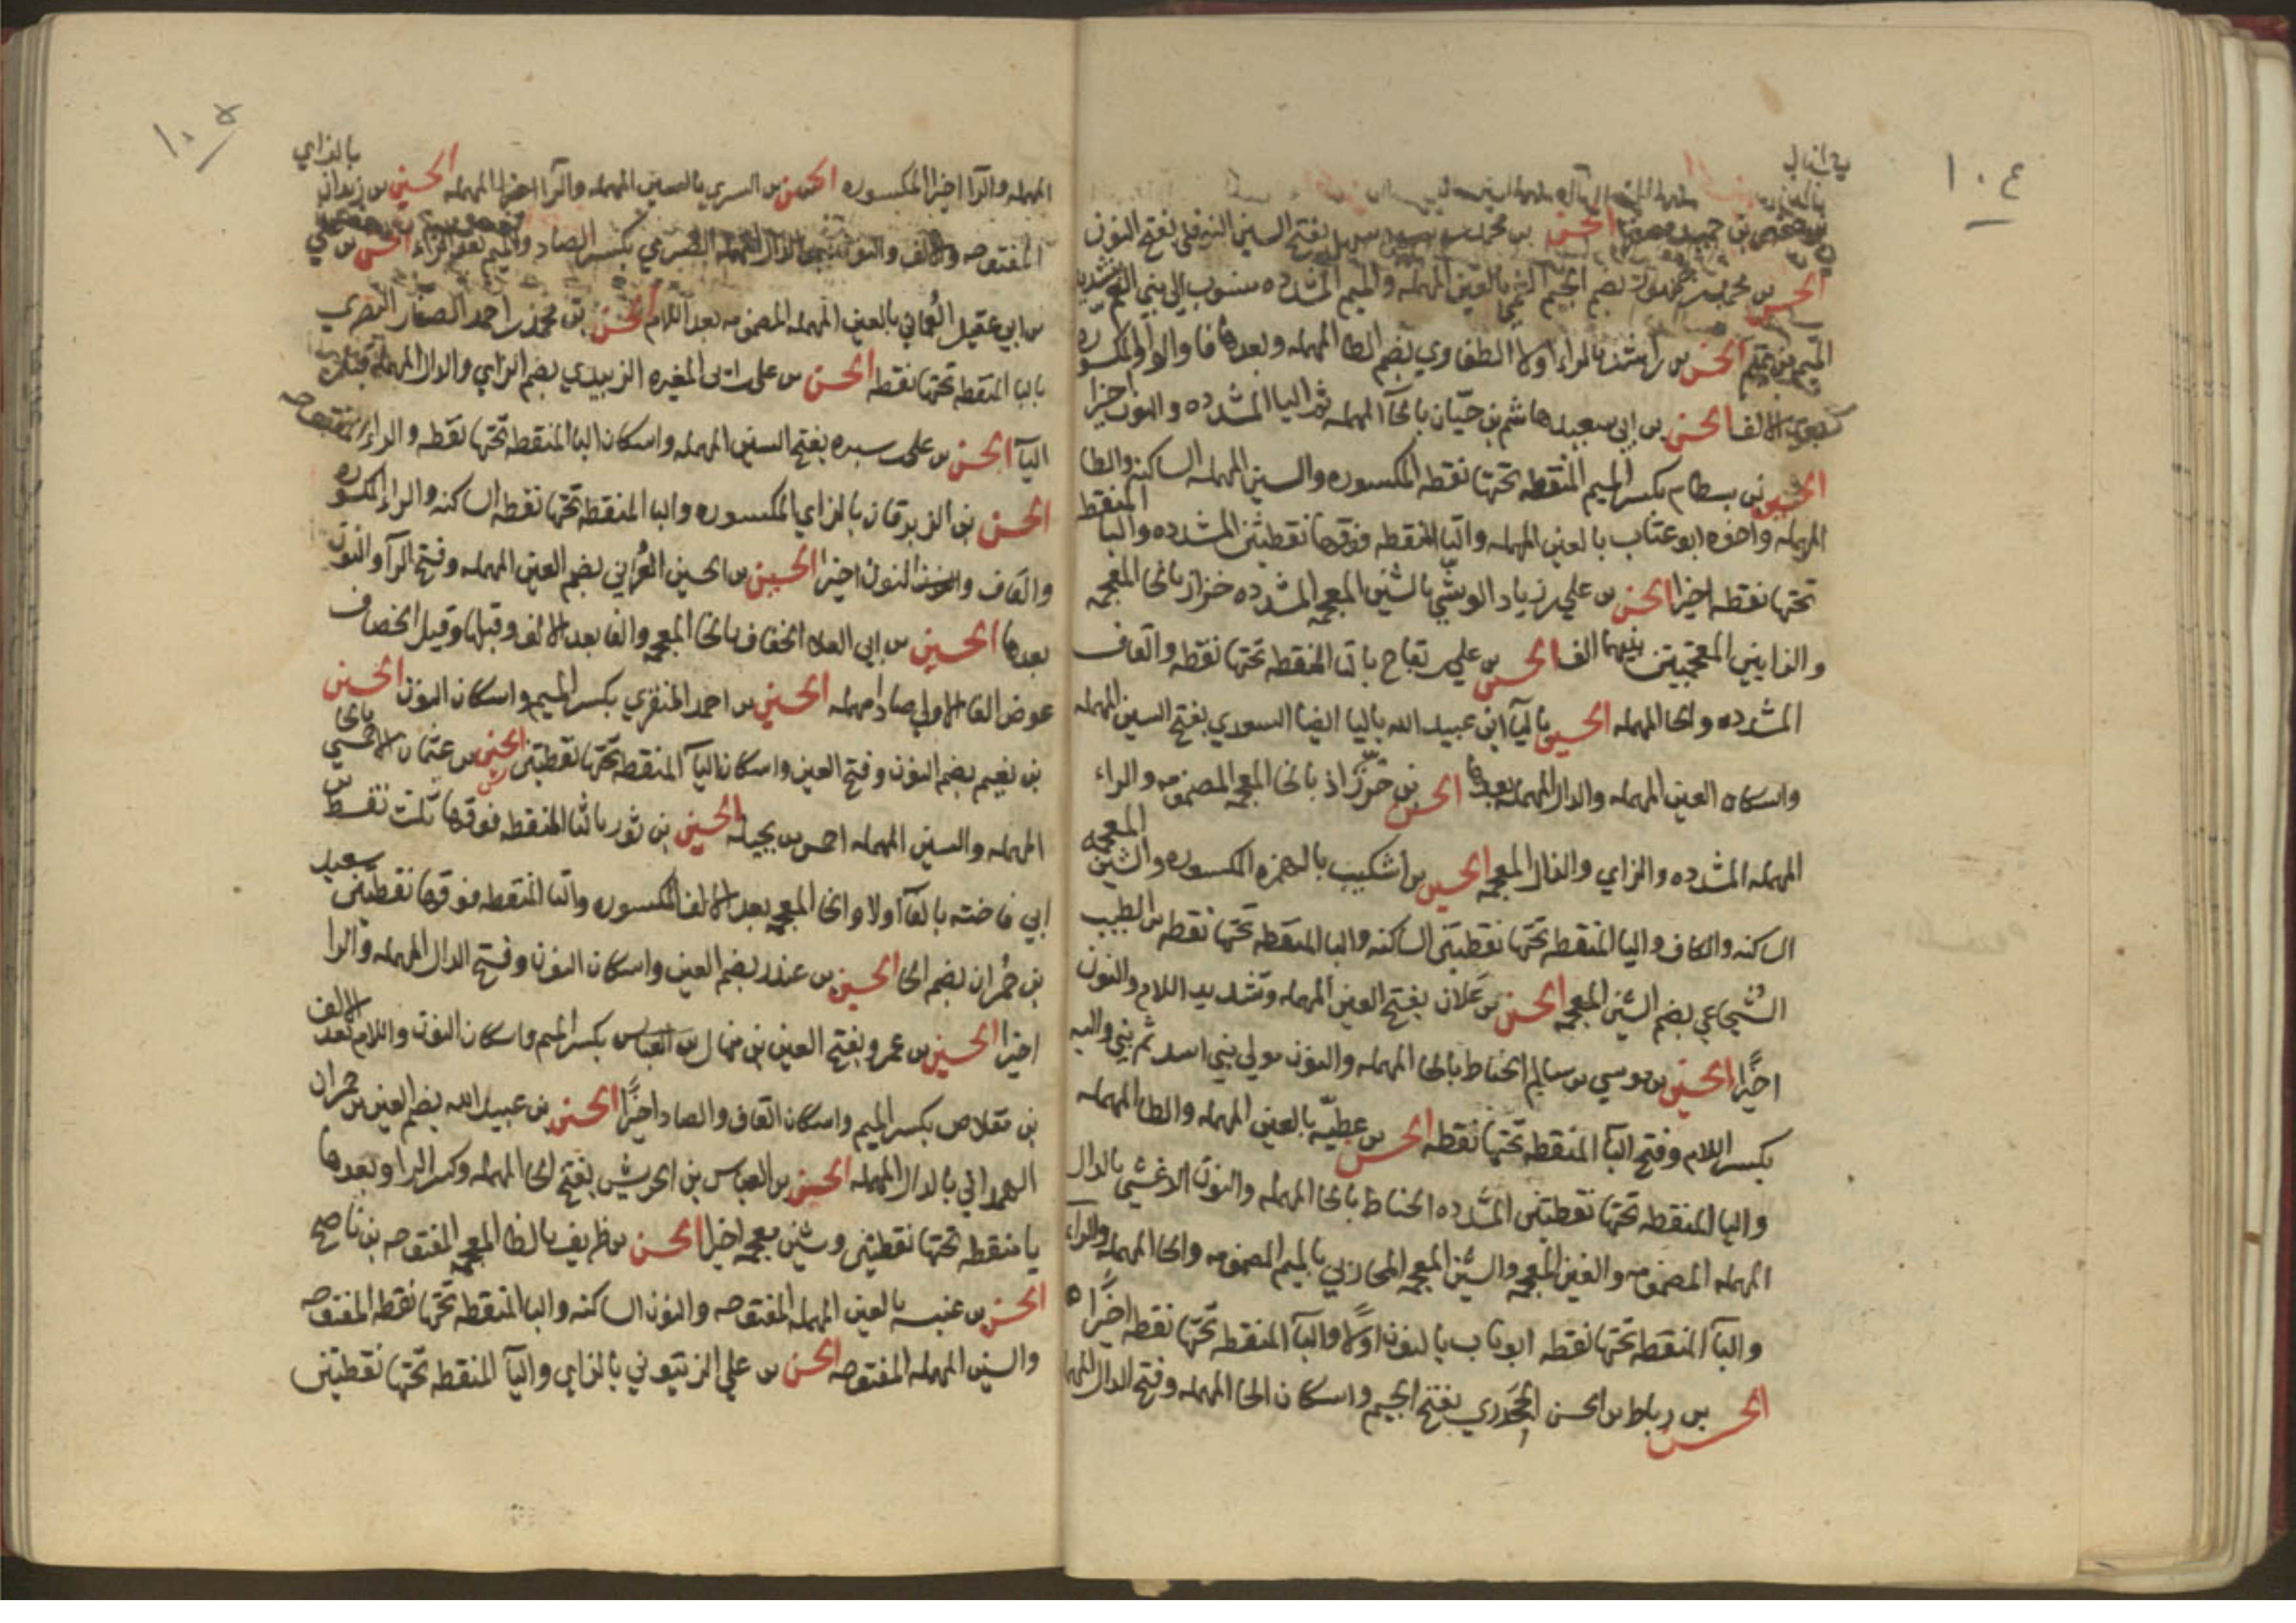 ١٠٤
الحسن بن محمد بن سهل بفتح السين النوفلي بفتح النون
الحسن بن محمد بن جمهور بضم الجيم العمي بالعين المهمله والميم المشدده منسوب الي بني العم
تميم الحسن بن راشد بالراء اولا الطفاوي بضم الطا المهمله وبعدها فا والواو المكسوره
الالف الحسن بن ابي سعيد هاشم بن حيّان بالحآ المهمله ثم اليا المشدده والنون اخيرا
الحسين بن بسطام بكسر الميم المنقطه تحتها نقطه المكسوره والسين المهمله الساكنه والطا
المهمله واخوه ابو عتاب بالعين المهمله والتا المنقطه فوقها نقطتين المشدده والبا المنقط
تحتها نقطه اخيرا الحسن بن علي بن زياد الوشّي بالشين المعجمه المشدده خزاز بالخا المعجمه
والزايين المعجمتين بينهما الف الحسن بن علي بن بقاح بالبا المنقطه تحتها نقطه والقاف
المشدده والحا المهمله الحسين باليآ ابن عبيد الله باليا ايضا السعدي بفتح السين المهمله
واسكان العين المهمله والدال المهمله بعدها الحسن بن خرّزاذ بالخا المعجمه المضمومه والراء
المهمله المشدده والزاي والذال المعجمه الحسين بن اشكيب بالهمزه المكسوره والشين المعجمه
الساكنه والكاف واليا المنقطه تحتها نقطتين الساكنه والبا المنقطه تحتها نقطه بن الطبيب
الشُجاعي بضم الشين المعجمه الحسن بن علان بفتح العين المهمله وتشديد اللام والنون
اخيرًا الحسين بن موسي بن سالم الحناط بالحا المهمله والنون مولي بني اسد ثم بني والبه
بكسر اللام وفتح البآ المنقطه تحتها نقطه الحسن بن عطيّه بالعين المهمله والطا المهمله
واليا المنقطه تحتها نقطتين المشدده الحناط بالحا المهمله والنون الدغشي بالدال
المهمله المضمومه والغين المعجمه والشين المعجمه المحاربي بالميم المضمومه والحا المهمله والراء
والبآ المنقطه تحتها نقطه ابو ناب بالنون اولًا والبآ المنقطه تحتها نقطه اخيرًا
الحسن بن رباط بن الحسن الجحدري بفتح الجيم واسكان الحا المهمله وفتح الدال المهمله
١٠٥
المهمله والرآ اخيرا المكسوره الحسن بن السري بالسين المهمله والرآ اخيرا المهمله الحسين بن زيدان بالزاي
المفتوحه والالف والنون الصرمي بكسر الصاد والميم بعد الراء الحسن بن علي
بن ابي عقيل العُماني بالعين المهمله المضمومه بعد اللام الحسن بن محمد بن احمد الصفار البصري
بالبا المنقطه تحتها نقطه الحسن بن علي بن ابي المغيره الزبيدي بضم الزاي والدال المهمله قبلها
اليآ الحسن بن علي بن سبره بفتح السين المهمله واسكان البا المنقطه تحتها نقطه والراء المفتوحه
الحسن بن الزبرقان بالزاي المكسوره والبا المنقطه تحتها نقطه الساكنه والراء المكسوره
والقاف والنون اخيرا الحسين بن الحسين العُرني بضم العين المهمله وفتح الرآ والنون
بعدها الحسين بن ابي العلاء الخفاف بالخا المعجمه والفا بعد الالف وقبلها وقيل الخصاف
عوض الفا الاولي صاد مهمله الحسين بن احمد المنقري بكسر الميم واسكان النون الحسين
بن نعيم بضم النون وفتح العين واسكان اليآ المنقطه تحتها نقطتين الحسين بن عثمان الاحمسي بالحا
المهمله والسين المهمله احمس بن بجيله الحسين بن ثور بالثا المنقطه فوقها ثلث نقط بن
ابي فاخته بالفآ اولا والخا المعجمه بعد الالف المكسوره والتا المنقطه فوقها نقطتين سعيد
بن حُمران بضم الحا الحسين بن عندر بضم العين واسكان النون وفتح الدال المهمله والرا
اخيرا الحسين بن عمرو بفتح العين بن منهال بن العباس بكسر الميم واسكان النون واللام بعد الالف
بن مقلاص بكسر الميم واسكان القاف والصاد اخيرًا الحسن بن عبيد الله بضم العين بن حمران
الهمداني بالدال المهمله الحسن بن العباس بن الحريش بفتح الحا المهمله وكسر الرا وبعدها
يا منقطه تحتها نقطتين وشين معجمه اخيرا الحسن بن ظريف بالظا المعجمه المفتوحه بن ناصح
الحسن بن عنبسه بالعين المهمله المفتوحه والنون الساكنه والبا المنقطه تحتها نقطه المفتوحه
والسين المهمله المفتوحه الحسن بن علي الزيتوني بالزاي واليآ المنقطه تحتها نقطتين